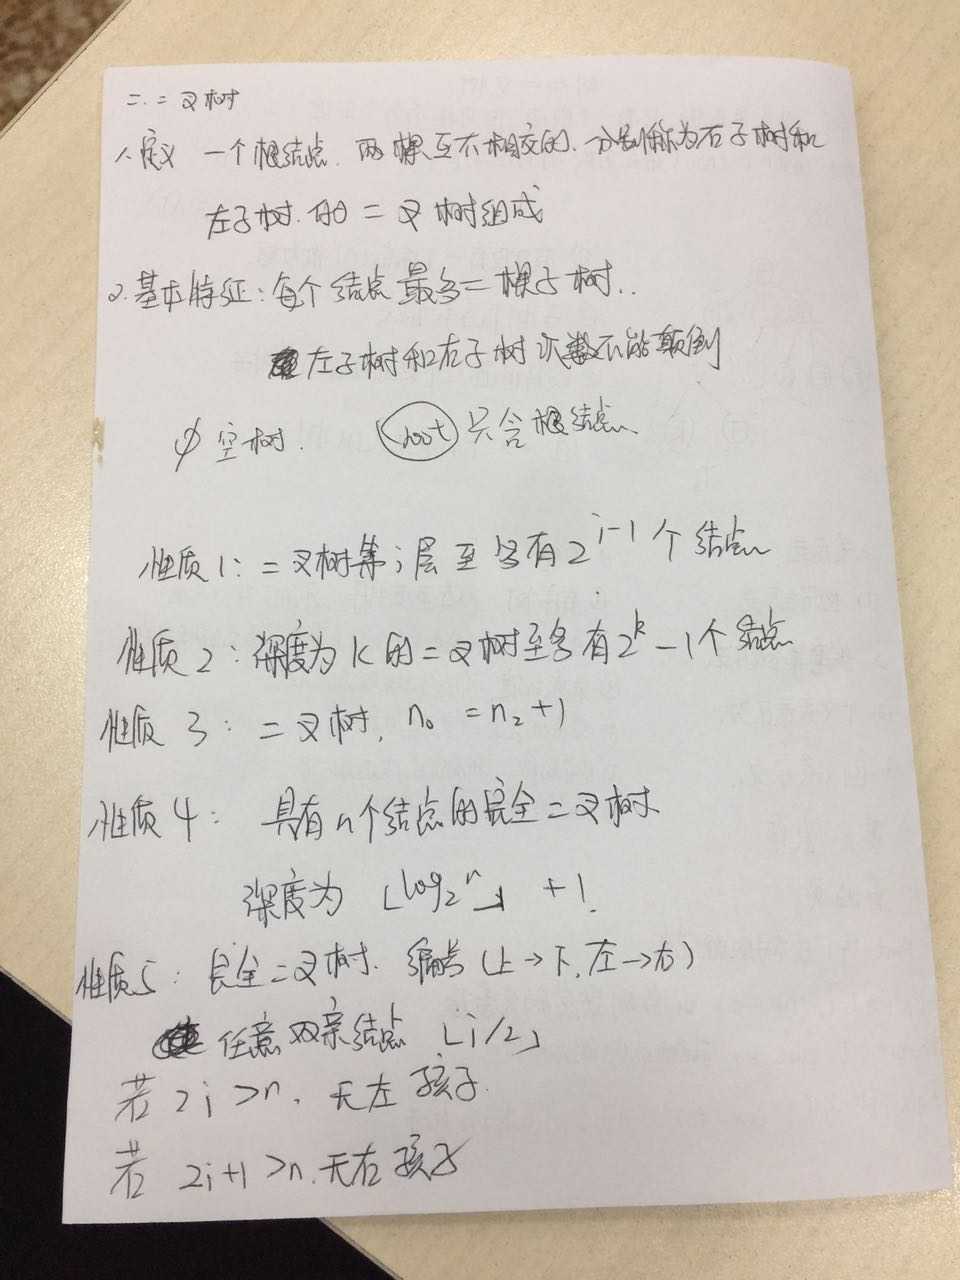 二.二叉树
1.定义 一个根结点.两棵互不相交的.分别称为右子树和
左子树.的二叉树组成
2.基本特征:每个结点最多二棵子树..
左子树和右子树次数不能颠倒
φ空树. root 只含根结点
性质1:二叉树第i层至多有2^{i-1}个结点
性质2:深度为K的二叉树至多有2^k-1个结点
性质3:二叉树,n₀=n₂+1
性质4: 具有n个结点的完全二叉树
深度为 ⌊log₂ⁿ⌋ +1.
性质5: 完全二叉树. 编号(上→下,左→右)
任意双亲结点 ⌊i/2⌋
若 2i>n. 无左孩子.
若 2i+1>n.无右孩子